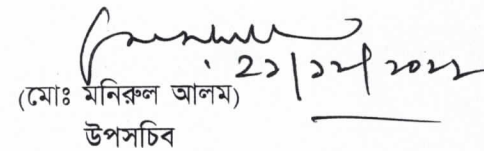 ২১/১২/২০২২
(মোঃ মনিরুল আলম)
উপসচিব